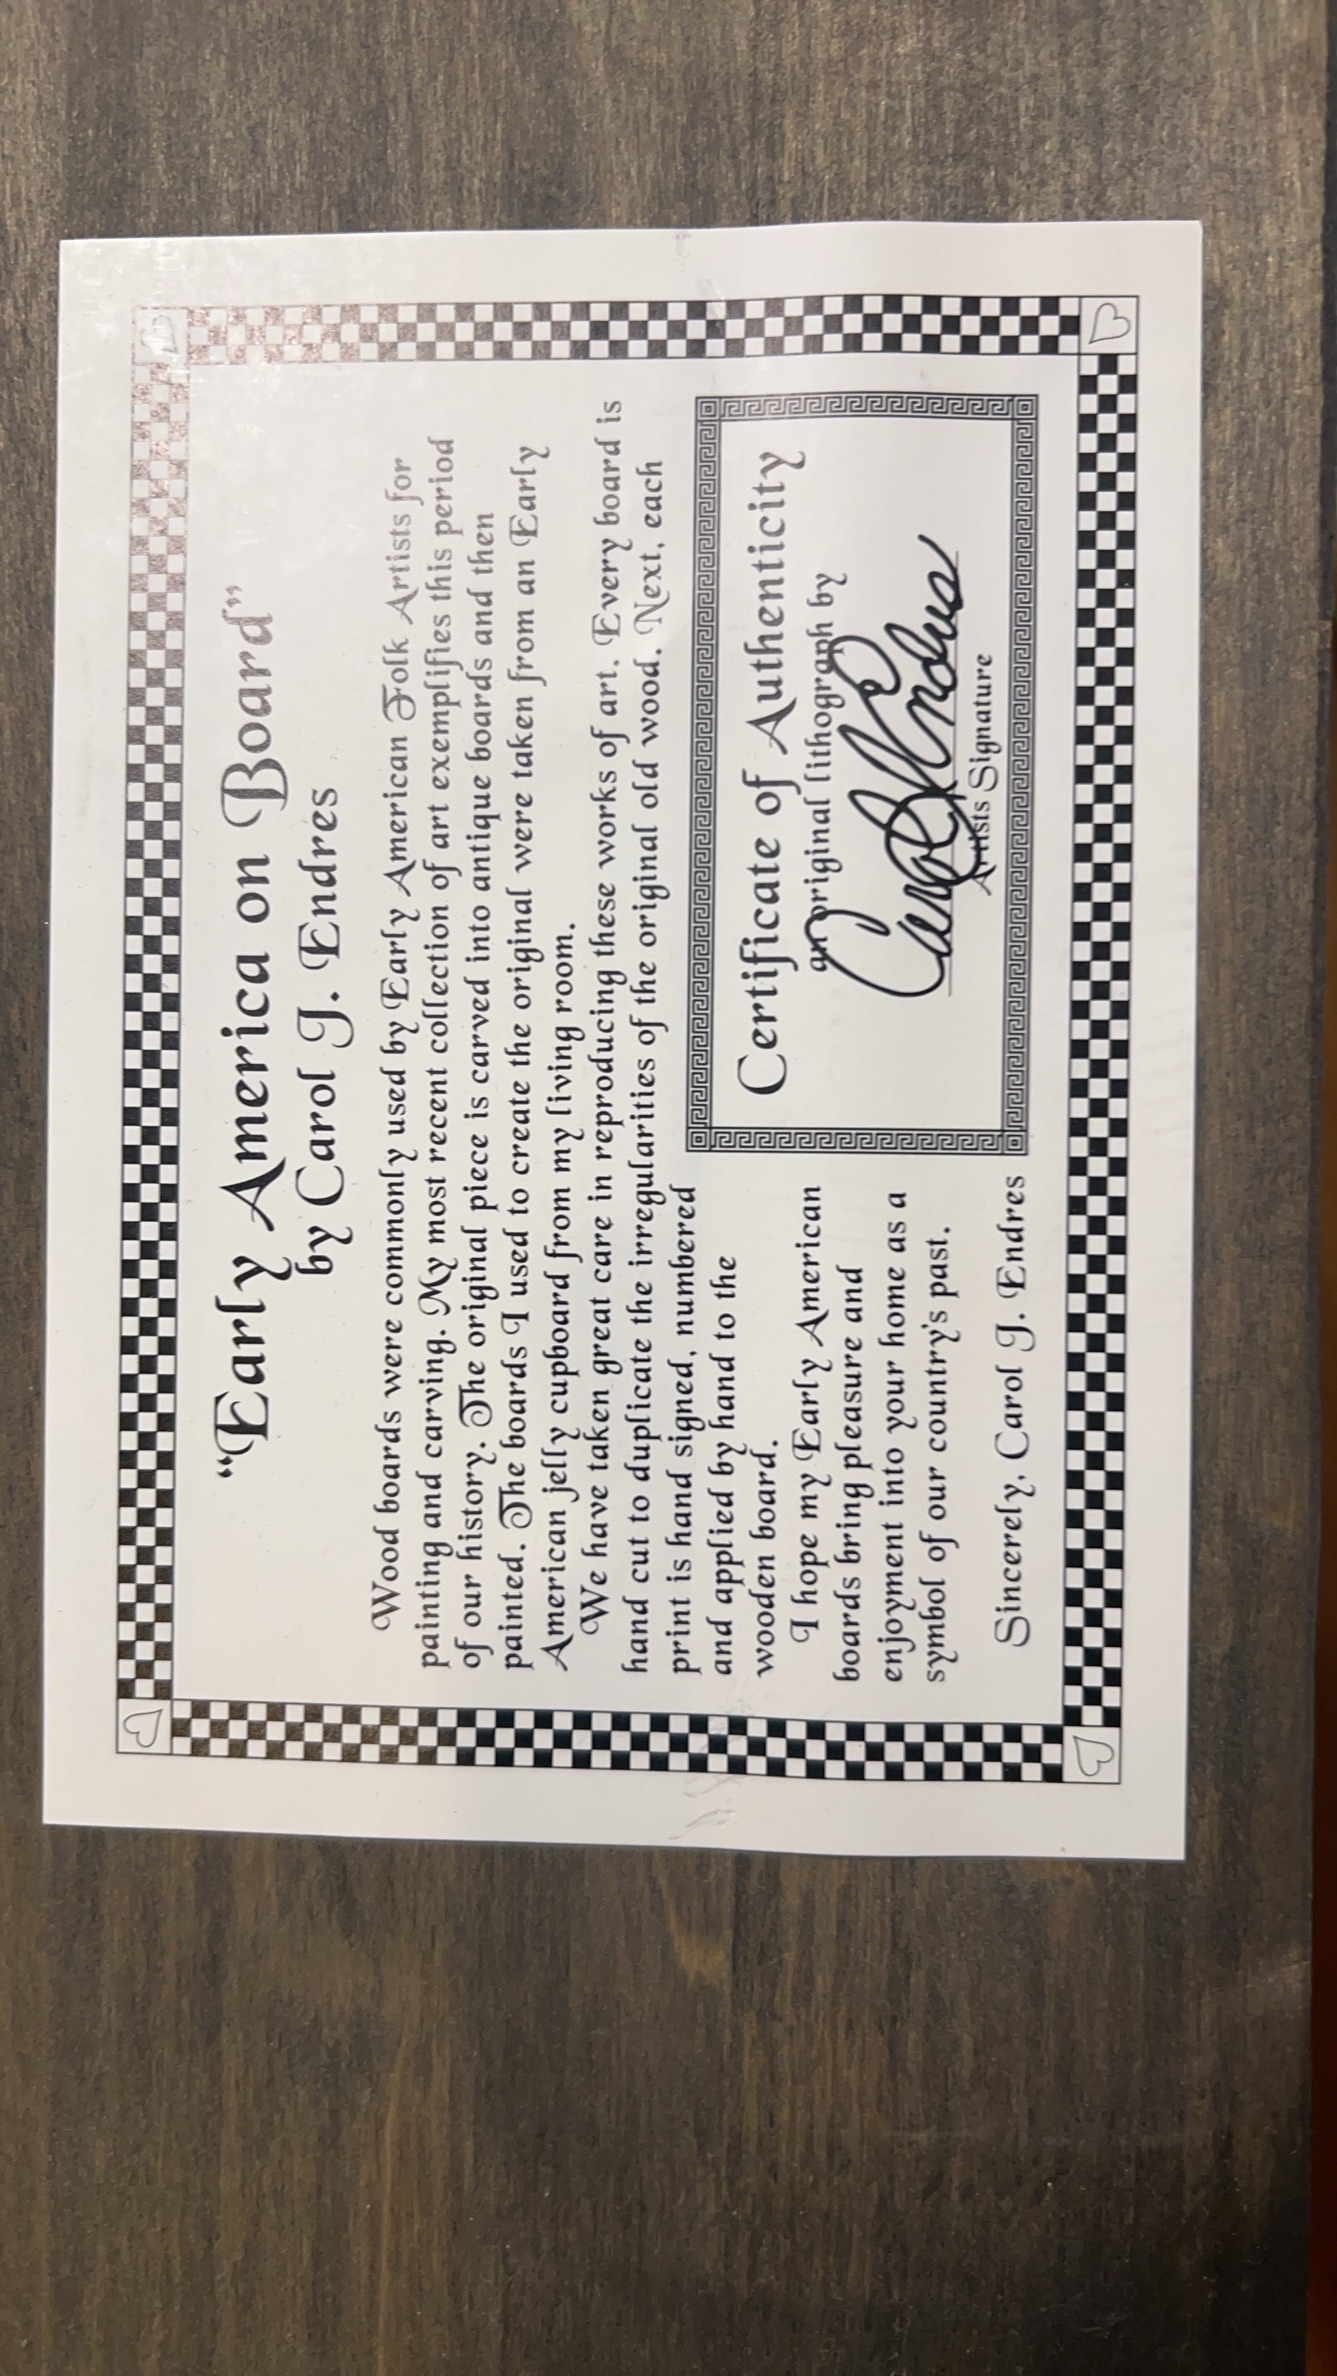 "Early America on Board"
by Carol J. Endres
Wood boards were commonly used by Early American Folk Artists for
painting and carving. My most recent collection of art exemplifies this period
of our history. The original piece is carved into antique boards and then
painted. The boards I used to create the original were taken from an Early
American jelly cupboard from my living room.
We have taken great care in reproducing these works of art. Every board is
hand cut to duplicate the irregularities of the original old wood. Next, each
print is hand signed, numbered
and applied by hand to the
wooden board.
I hope my Early American
boards bring pleasure and
enjoyment into your home as a
symbol of our country's past.
Sincerely, Carol J. Endres
Certificate of Authenticity
an original lithograph by
Carol J Endres
Artists Signature